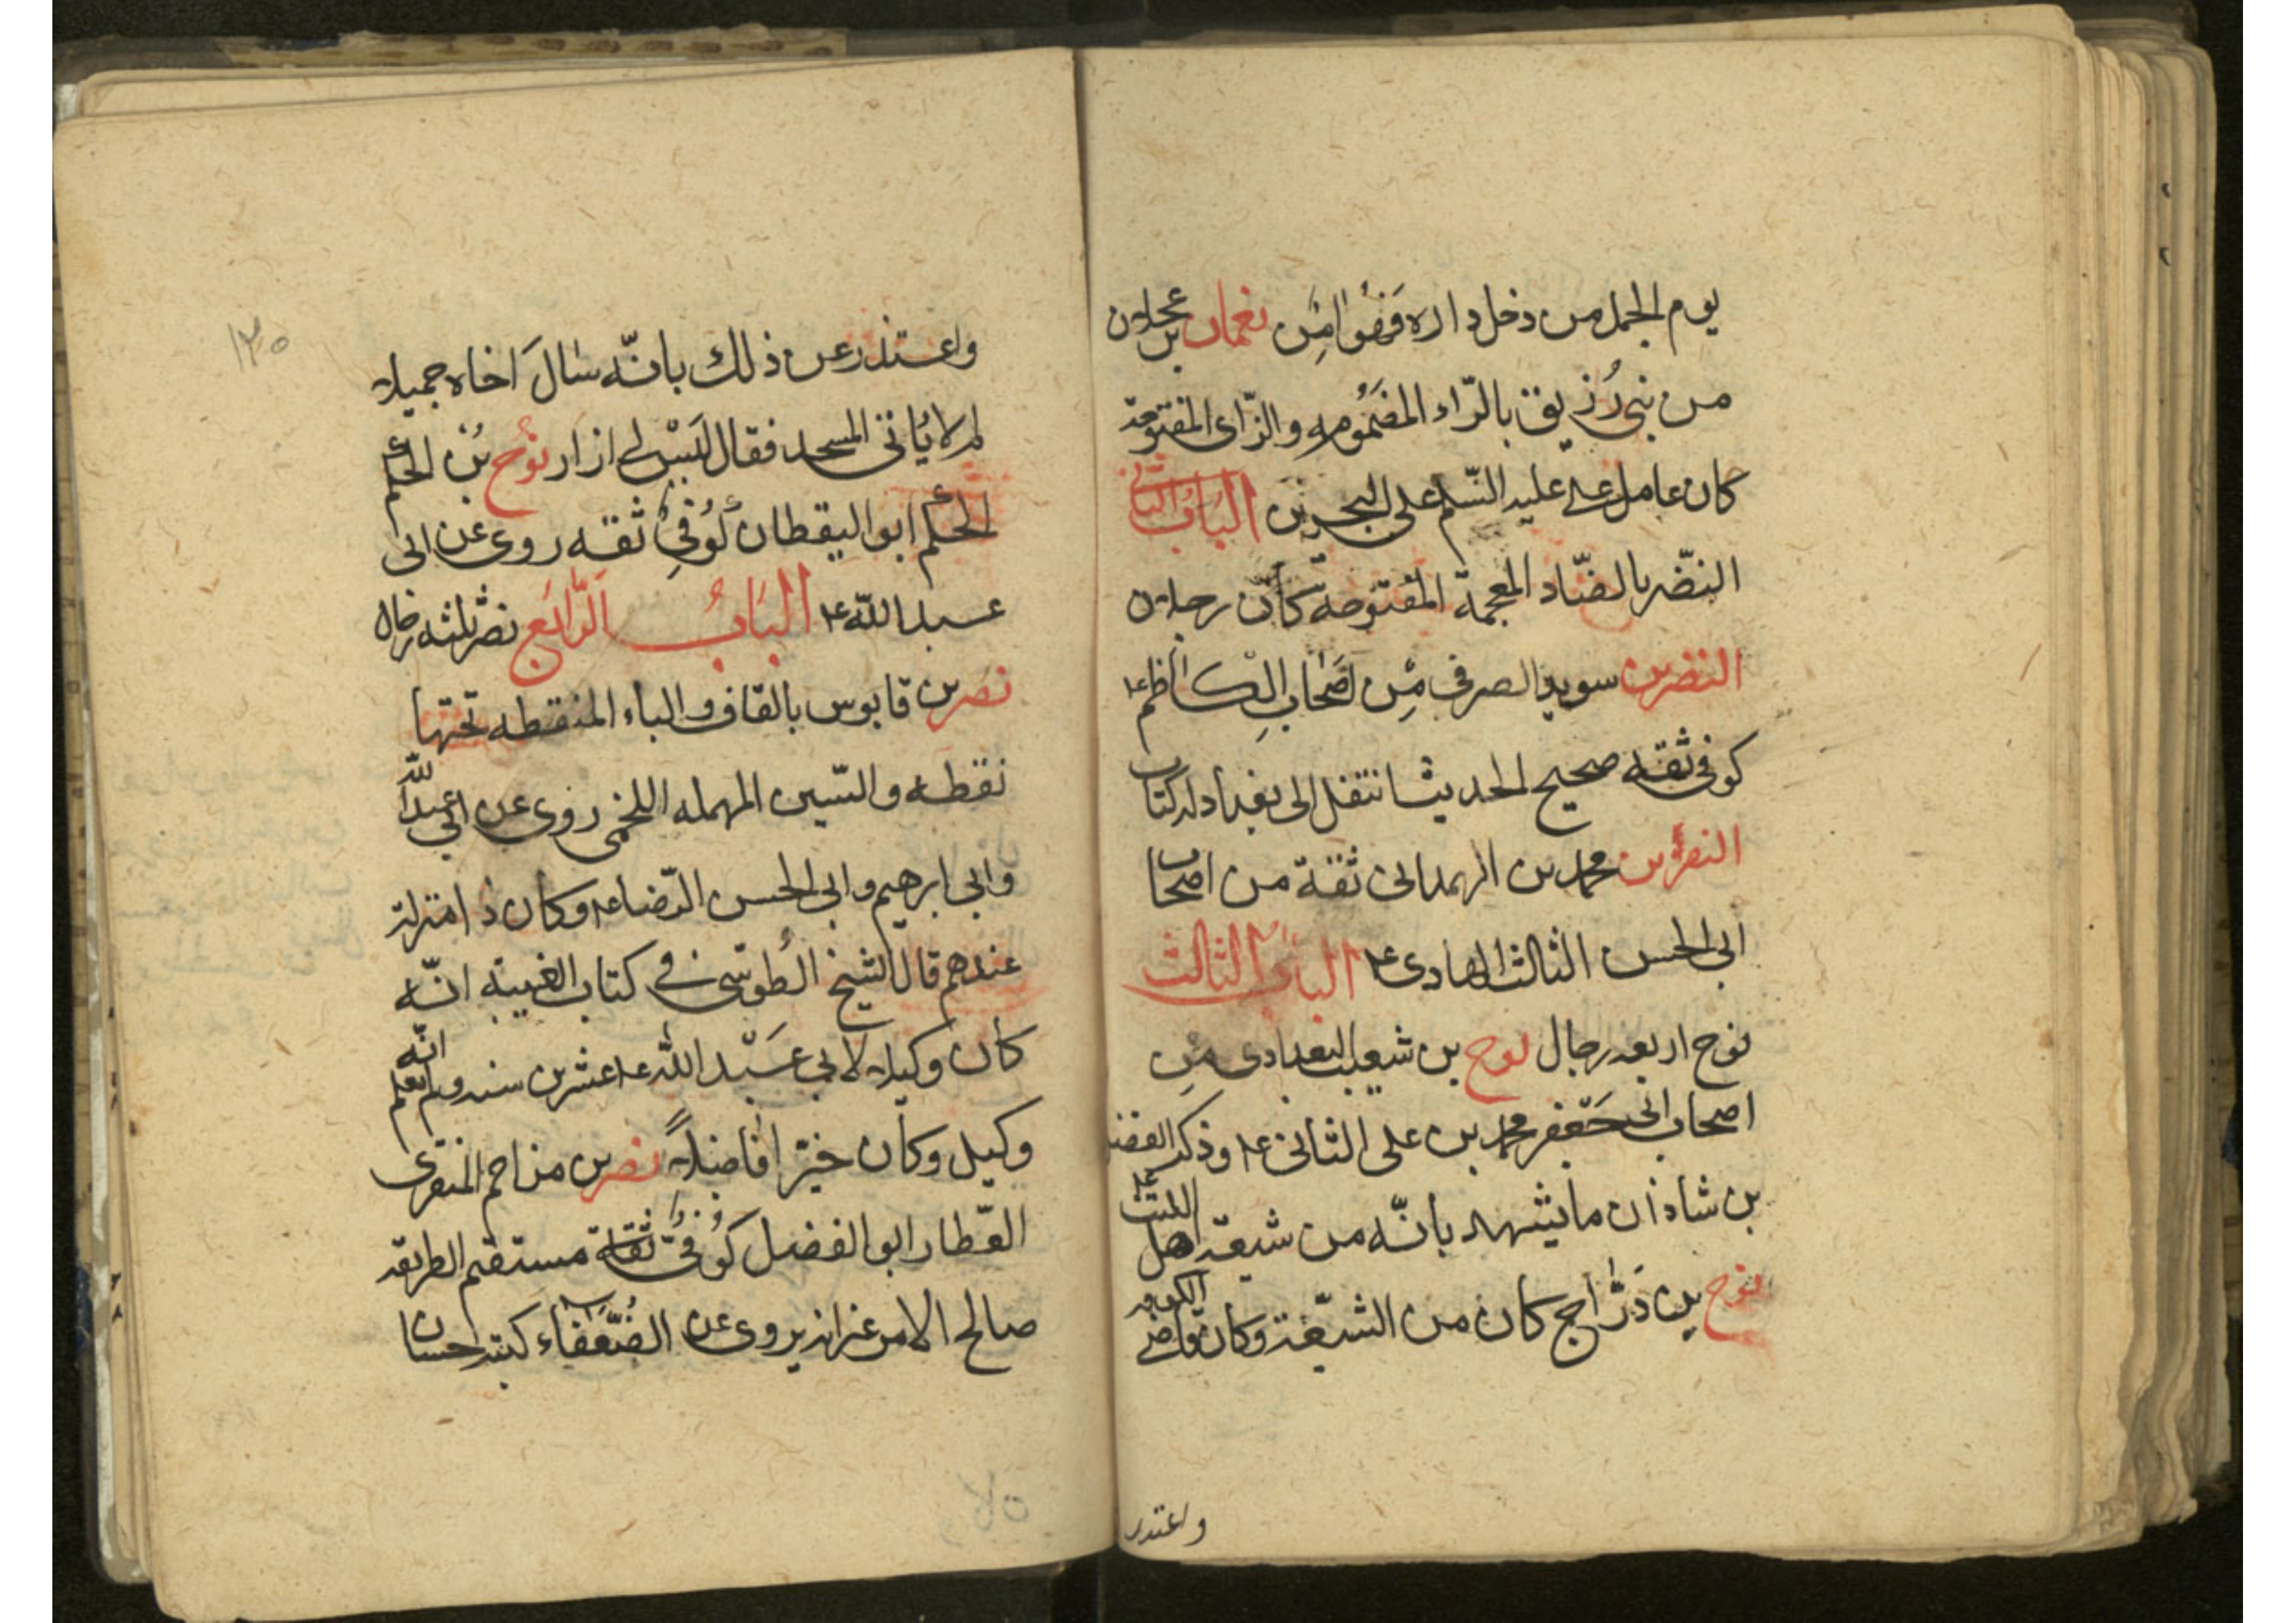 يوم الجمل من دخل داره فهو امن نعمان بن عجلان
من بنى رُزيق بالرّاء المضمُومه والزّاى المفتوحة
كان عامل على عليه السّلم على البحرين البَابُ الثانى
النضّر بالضّاد المعجمة المفتوحة كانّ رجلان
النضر بن سويد الصرفى مِن اصَحابِ الكاظم ع
كوفى ثقه صحيح الحديث انتقل الى بغداد له كتاب
النضر بن محمد بن الهمدانى ثقة من اصحاب
ابى الحسن الثالث الهادى ع الباب الثالث
نوح اربعه رجال نوح بن شعيب البغدادى مِن
اصحاب ابى جعفر محمد بن على الثانى ع وذكر الفضل
بن شاذان ما يشهد بانّه من شيعة اهل البيت ع
نوح بن دَرّاج كان من الشيّعة وكان قاضى الكوفه
واعتدر
١٢٥
واعتذر عن ذلك بانّه سالَ اخاه جميلا
لم لا ياتى المسجد فقال ليسْ لى ازار نوُح بُن الحكم
الحكم ابو اليقظان كُوُفِى ثقه روى عن ابى
عبد الله ع البَابُ الرَّابَع نصر ثلثه رجال
نصر بن قابوس بالقاف والباء المنقطه تحتها
نقطه والسّين المهمله اللخمى روى عن ابى عبد الله
وابى ابرهيم وابى الحسن الرّضا ع وكان ذا منزلة
عندهم قال الشيخ الطُوسّى فى كتاب الغيبة انّه
كان وكيلا لابى عَبْد الله ع عشرين سنه ولم يعلم انّه
وكيل وكان خيّرا فاضلاً نصر بن مزاحم المنقرى
العّطار ابو الفضل كوُفىّ ثقة مستقيم الطريقه
صالح الامر غير انه يروى عن الضُّعَفاء كتبه حسان